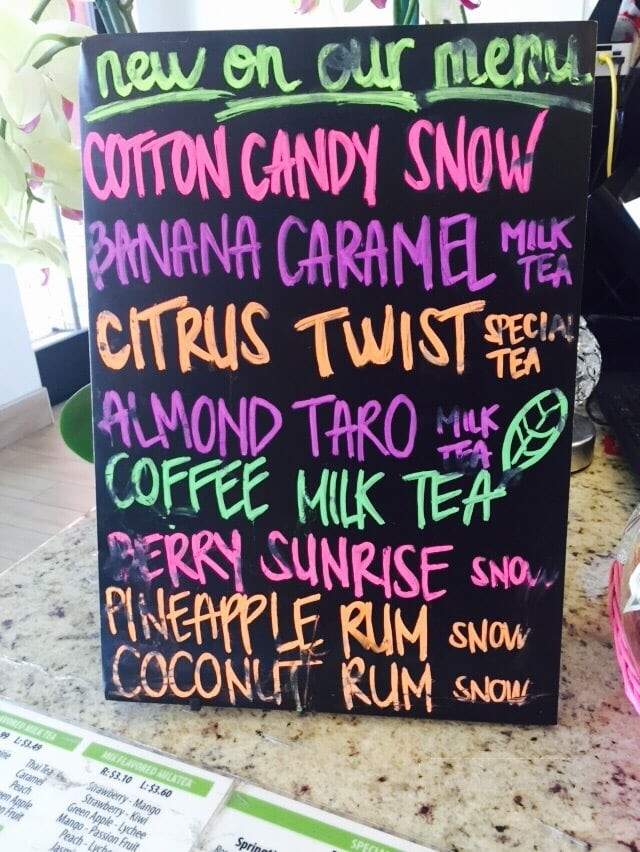 new on our menu
COTTON CANDY SNOW
BANANA CARAMEL MILK TEA
CITRUS TWIST SPECIAL TEA
ALMOND TARO MILK TEA
COFFEE MILK TEA
BERRY SUNRISE SNOW
PINEAPPLE RUM SNOW
COCONUT RUM SNOW
L:$3.49
Thai Tea
Caramel
Peach
MIX FLAVORED MILK TEA
R:$3.10 L:$3.60
Strawberry - Mango
Strawberry - Kiwi
Green Apple - Lychee
Mango - Passion Fruit